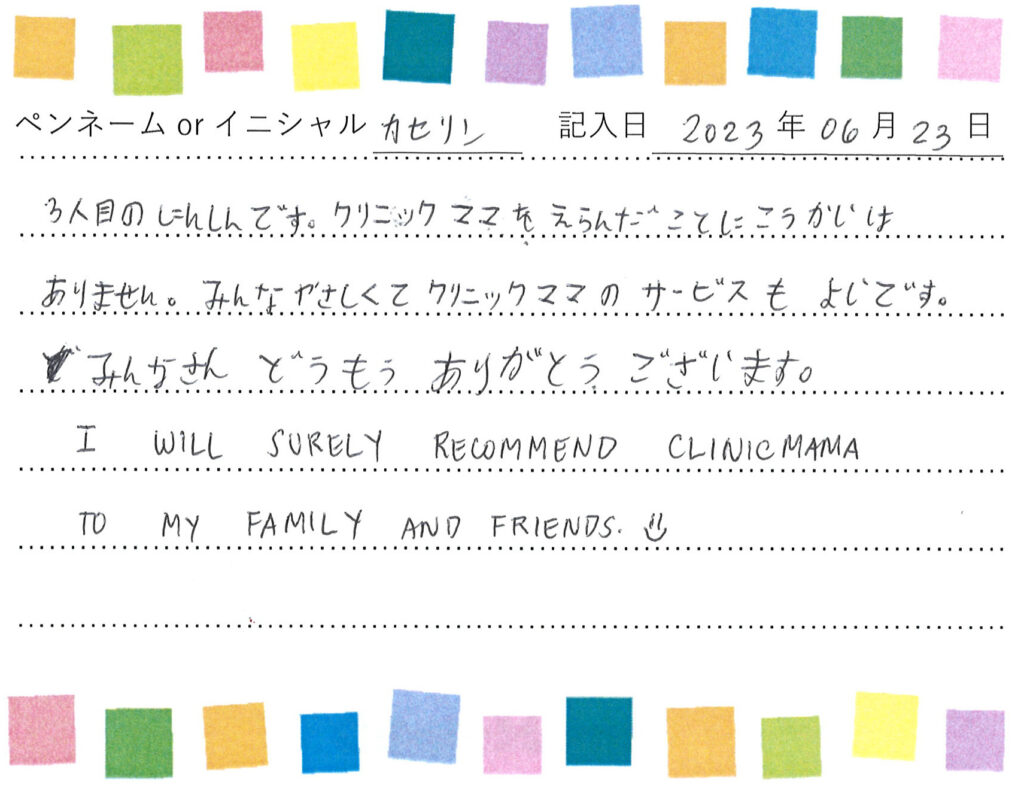 ペンネーム or イニシャル カセリン 記入日 2023 年 06 月 23 日
3人目のにんしんです。クリニックママを えらんだ ことに こうかいは
ありません。みんなやさしくて クリニックママの サービスも よいです。
みんなさん どうもう ありがとう ございます。
I WILL SURELY RECOMMEND CLINICMAMA
TO MY FAMILY AND FRIENDS.